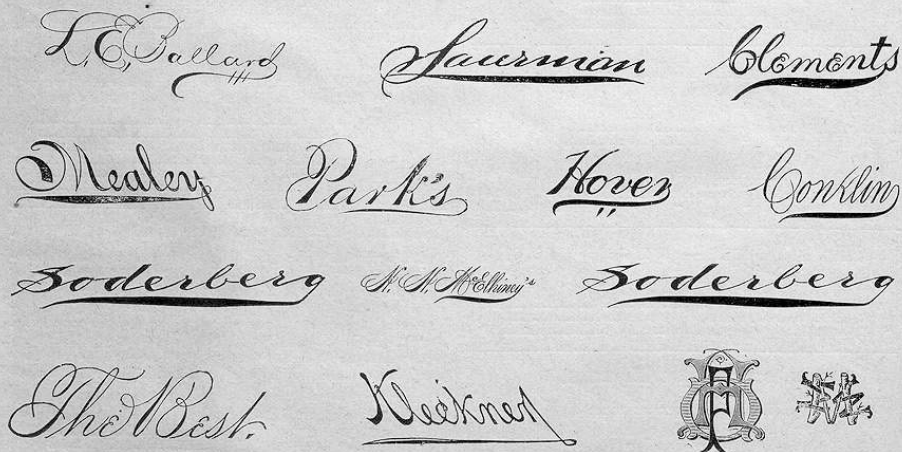 L. E. Ballard Saurman Clements
Mealey Park's Hover Conklin
Soderberg N. N. McElhiney's Soderberg
The Best. Kleckner